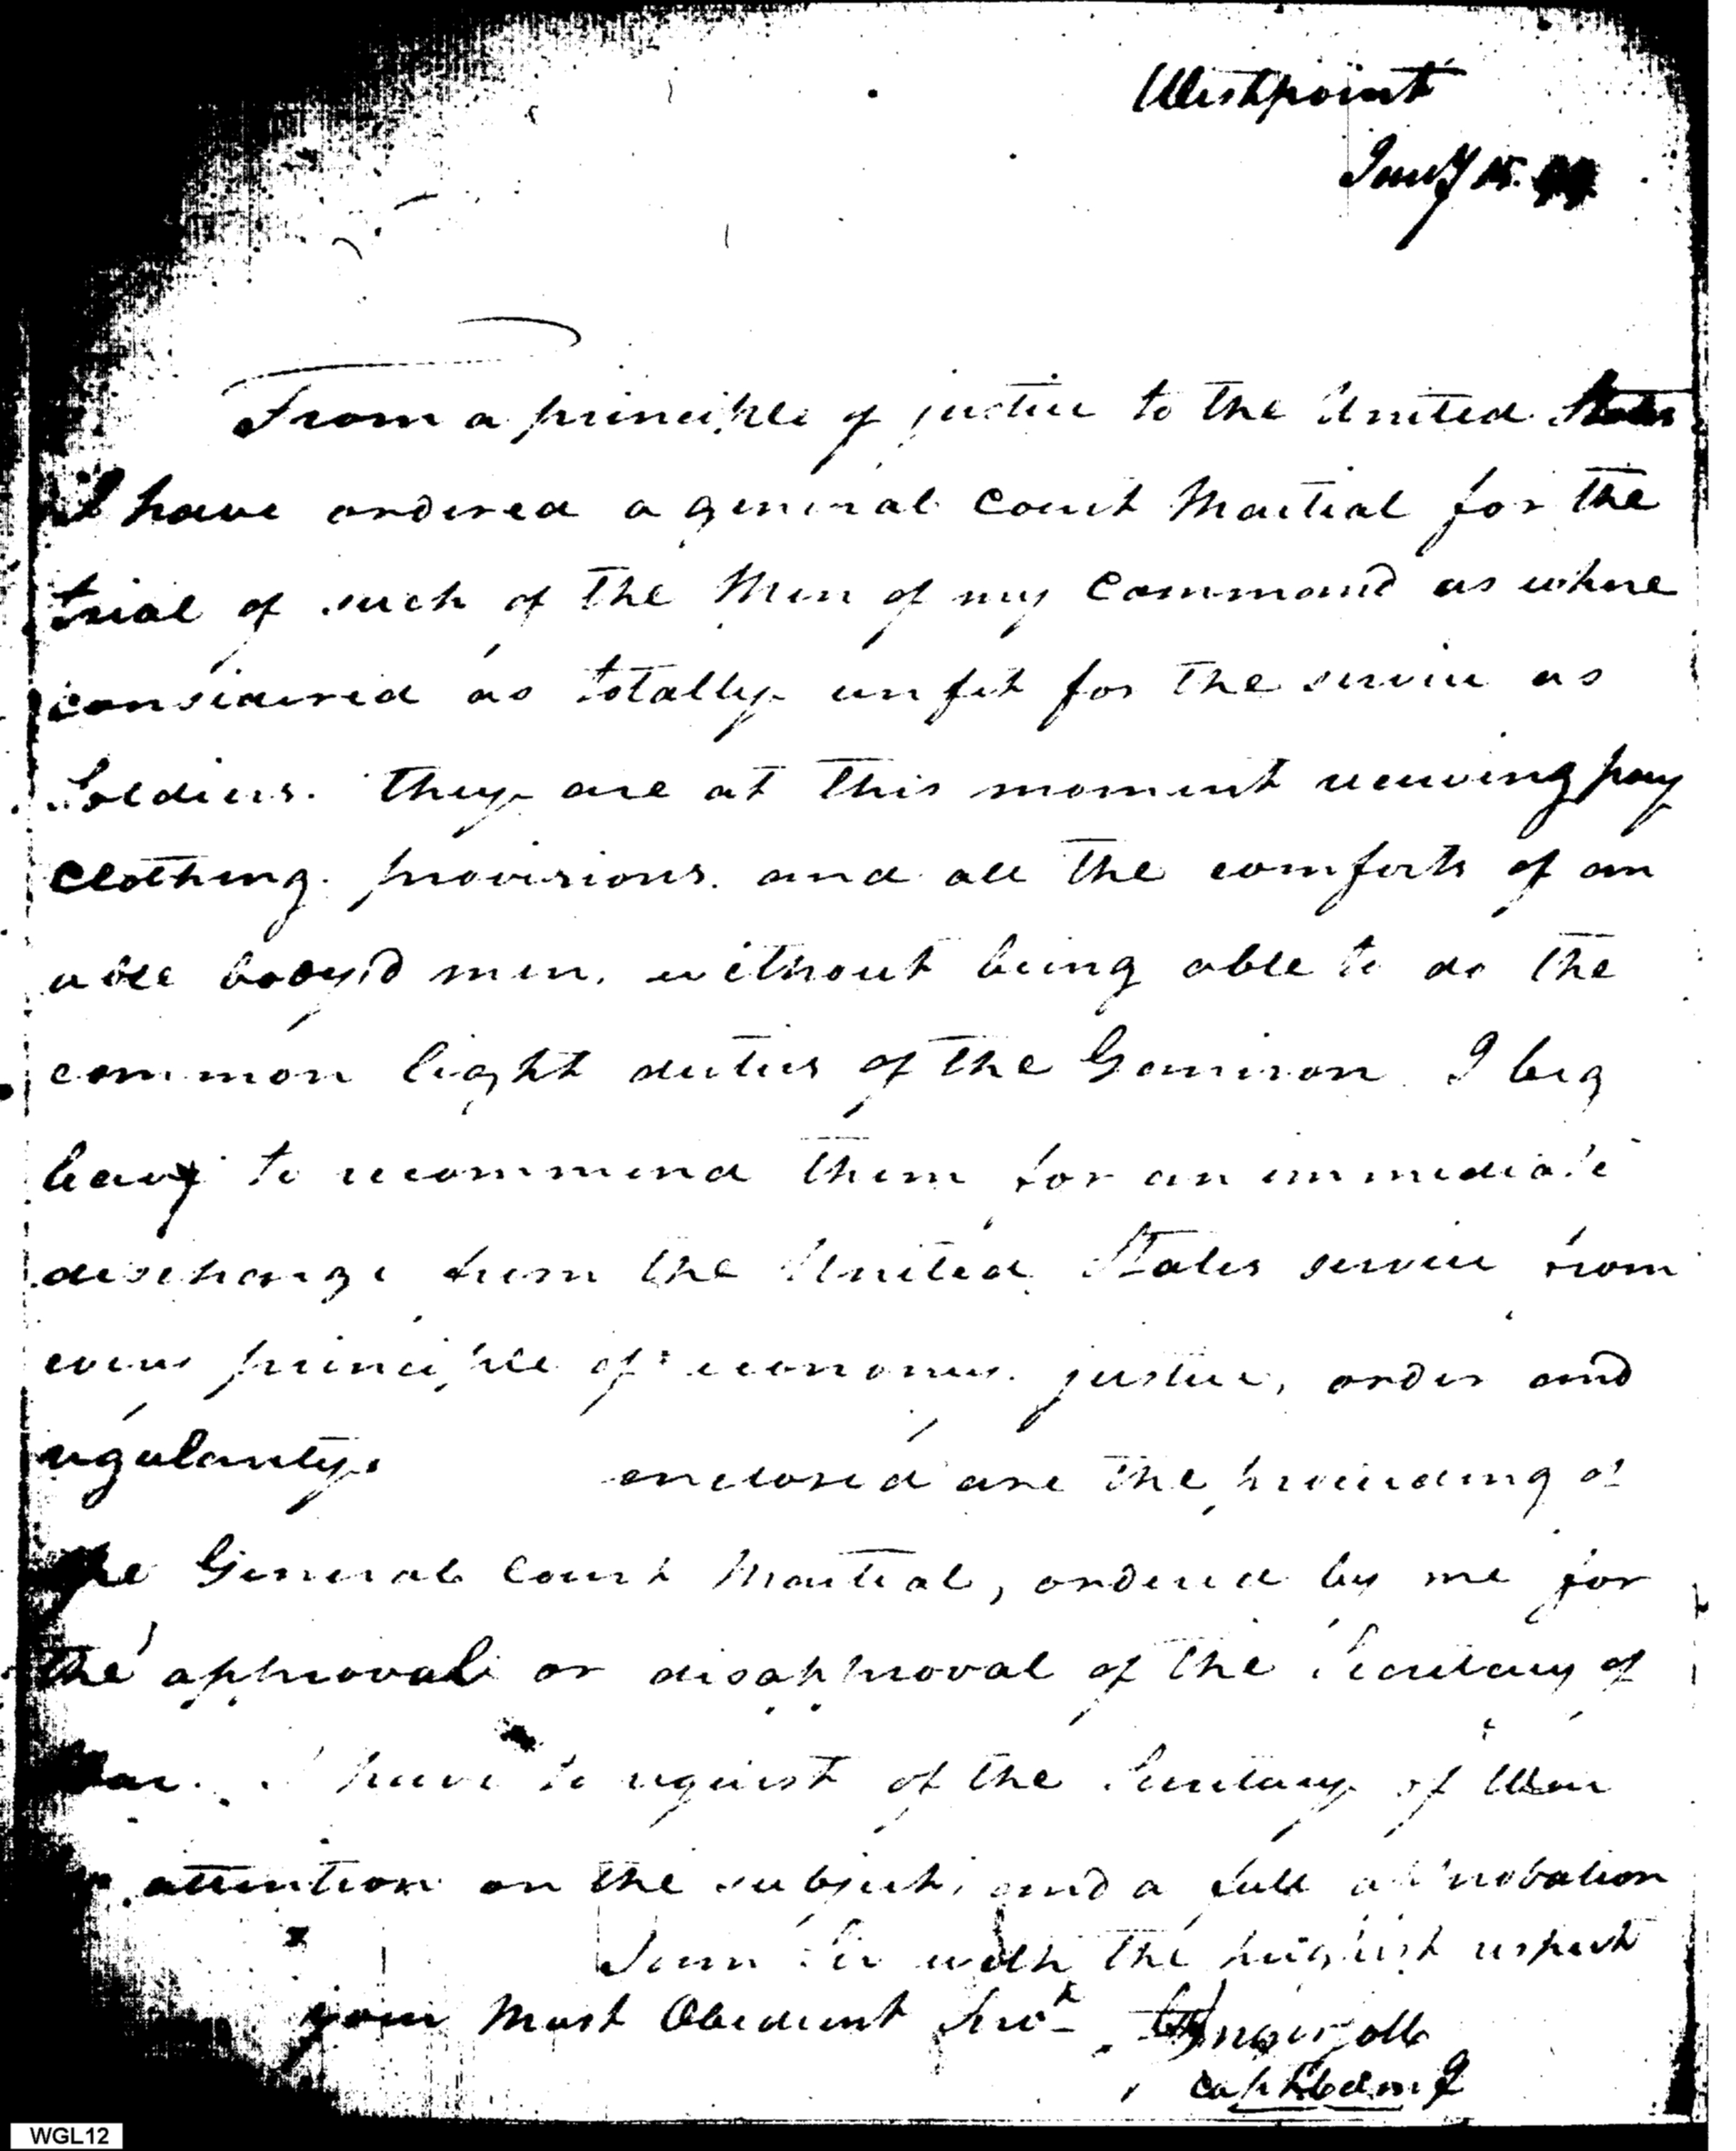 Westpoint
Jany 15.
From a principle of justice to the United States
I have ordered a general Court Martial for the
trial of such of the Men of my Command as where
considered as totally unfit for the service as
Soldiers. they are at this moment receiving pay
Clothing. provisions. and all the comforts of an
able body'd men. without being able to do the
common light duties of the Garrison I beg
leave to recommend them for an immediate
discharge from the United States service from
every principle of economy. justice, order and
regularity. enclosed are the proceeding of
the General Court Martial, ordered by me for
the approval or disapproval of the Secretary of
War. I have to request of the Secretary of War
attention on the subject, and a full approbation
I am Sir with the highest respect
your Most Obedient Servt
Capt
WGL12